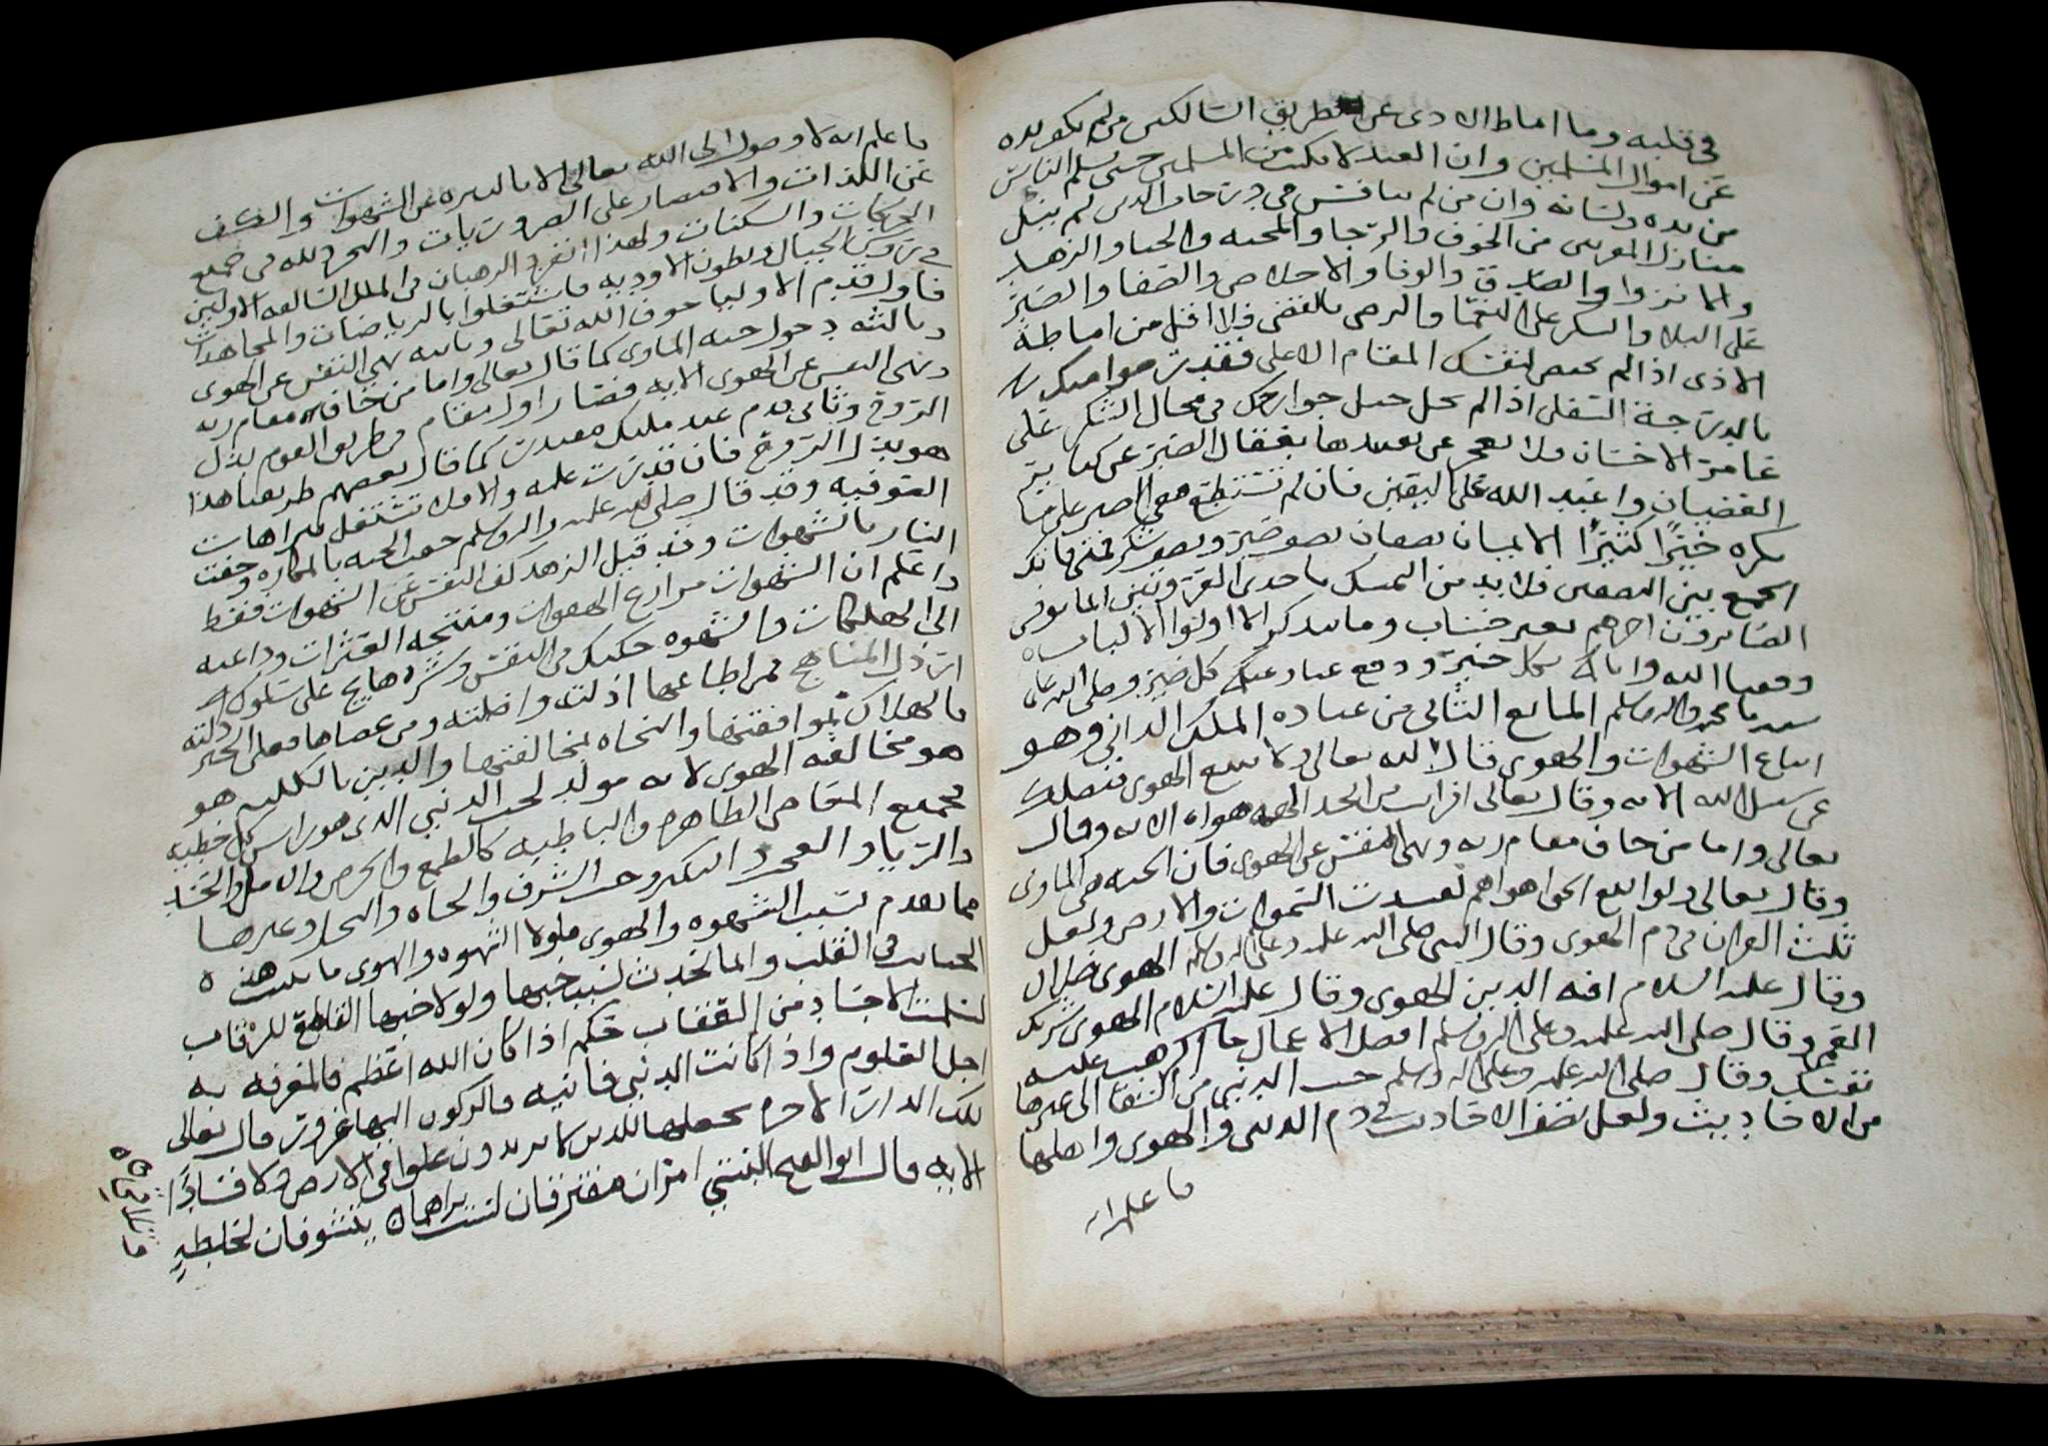 في قلبه وما اماط الاذى عن طريق السالكين من لم يكف يده
عن اموال المسلمين وان العبد لا يكتب من المسلمين حتى يسلم الناس
من يده ولسانه وان من لم ينافس في درجات الدين لم ينل
منازل المقربين من الخوف والرجا والمحبه والحيا والزهد
والصدق والوفا والاخلاص والصفا والصبر
على البلا والشكر على النعما والرضى بالقضى فلا اقل من اماطة
الاذى اذا لم تخص نفسك المقام الاعلى فقدت
بالدرجة السفلى اذا لم تحل خيل جوارحك في مجال الشكر على
غامرة الاحسان فلا تعجز عن تقييدها بعقال الصبر عن
العصيان واعبد الله على اليقين فان لم تستطع ففي الصبر على ما
تكره خيرًا كثيرًا الايمان نصفان نصف صبر ونصف شكر فمن فاته
الجمع بين النصفين فلا بد من التمسك باحدى القرينتين انما يوفى
الصابرون اجرهم بغير حساب وما يذكر الا اولوا الالباب
وفقنا الله واياك لكل خير ودفع عنا وعنك كل ضير وصلى الله على
سيدنا محمد واله وسلم المانع الثاني من عباده الملك الداني وهو
اتباع الشهوات والهوى قال الله تعالى ولا تتبع الهوى فيضلك
عن سبيل الله الايه وقال تعالى افرايت من اتخذ الهه هواه الايه وقال
تعالى واما من خاف مقام ربه ونهى النفس عن الهوى فان الجنه هي الماوى
وقال تعالى ولو اتبع الحق اهواهم لفسدت السموات والارض ولعل
ثلث القران في ذم الهوى وقال النبي صلى الله عليه وعلى اله وسلم الهوى ضلال
وقال عليه السلام افه الدين الهوى وقال عليه السلام الهوى شريك
العمى وقال صلى الله عليه وعلى اله وسلم افضل الاعمال ما اكرهت عليه
نفسك وقال صلى الله عليه وعلى اله وسلم حب الدنيى من الشقا الى غيرها
من الاحاديث ولعل نصف الاحاديث في ذم الدنيى والهوى واهلها
فاعلم انه
فاعلم انه لا وصول الى الله تعالى الا بالتنزه عن الشهوات والكف
عن اللذات والاقتصار على الضروريات والتجرد لله في جميع
الحركات والسكنات ولهذا انفرد الرهبان في الملل السالفه الاولين
في رؤس الجبال وبطون الاوديه فاشتغلوا بالرياضات والمجاهدات
فاول قدم الاوليا خوف الله تعالى وثانيه نهي النفس عن الهوى
وثالثه دخول جنه الماوى كما قال تعالى واما من خاف مقام ربه
ونهى النفس عن الهوى الايه فصار اول مقام في طريق القوم بذل
الروح وثاني قدم عند مليك مقتدر كما قال بعضهم طريقنا هذا
هو بذل الروح فان قدرت عليه والا فلا تشتغل بترهات
الصوفيه وقد قال صلى الله عليه واله وسلم حفت الجنه بالمكاره وحفت
النار بالشهوات وقد قيل الزهد كف النفس عن الشهوات فقط
واعلم ان الشهوات مزارع الهفوات ومنتجه العثرات وداعيه
الى الهلكات والشهوه من النفس على سلوك
ارذل المناهج فمن اطاعها اذلته واضلته ومن عصاها فعلى الخير دلته
فالهلاك بموافقتها والنجاه بمخالفتها والدين بالكليه هو
هو مخالفه الهوى لانه مولد لحب الدنيى الذي هو راس كل خطيه
فجميع المعاصي الظاهره والباطنه كالطمع والحرص والامل والحسد
والريا والعجب والتكبر وحب الشرف والجاه والبخل وغيرها
مما تقدم بسبب الشهوه والهوى فلولا الشهوه والهوى ما هذه
في القلب وانما تحدث بسبب حبها ولولا حبها القاطع للرقاب
لسلمت الاجساد من العقاب حكم اذا كان الله اعظم فالمعرفه به
اجل العلوم واذا كانت الدنيى فانيه فالركون اليها غرور قال تعالى
تلك الدار الاخره نجعلها للذين لا يريدون علوا في الارض ولا فسادًا
الايه قال ابو الفتح البستي امران مفترقان لست تراهما يتشوفان لخلطه
وتلاقي